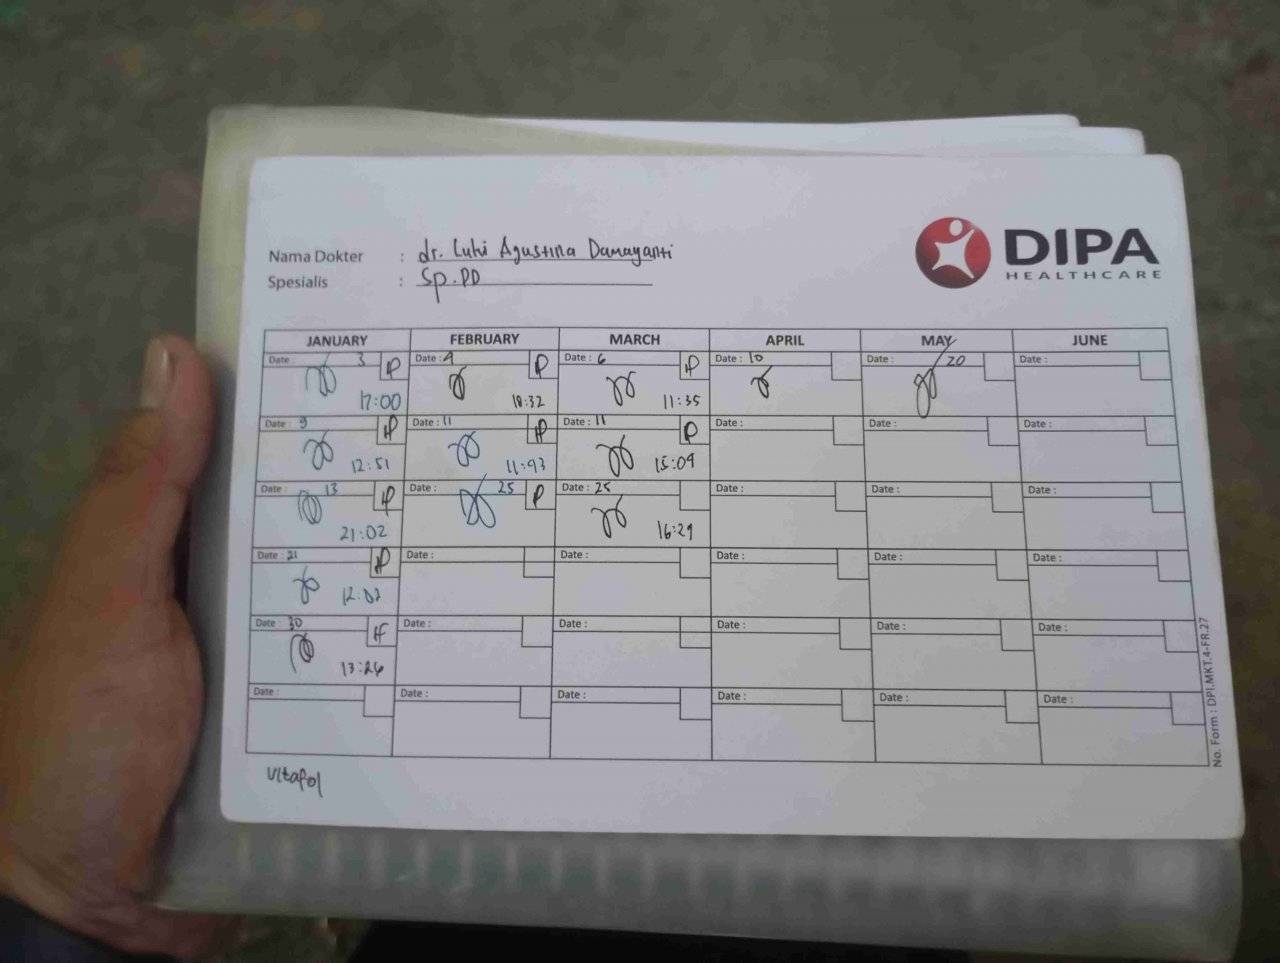 DIPA
HEALTHCARE
Nama Dokter : dr. Luhi Agustina Damayanti
Spesialis : Sp.PD
JANUARY FEBRUARY MARCH APRIL MAY JUNE
Date : 3 Date : 4 Date : 6 Date : 10 Date : 20 Date :
17:00 18:32 11:35
Date : 9 Date : 11 Date : 11 Date : Date : Date :
12:51 11:43 15:09
Date : 13 Date : 25 Date : 25 Date : Date : Date :
21:02 16:29
Date : 21 Date : Date : Date : Date : Date :
12:02
Date : 30 Date : Date : Date : Date : Date :
13:26
Date : Date : Date : Date : Date : Date :
Vitafol
No. Form : DPI.MKT.4-FR.27